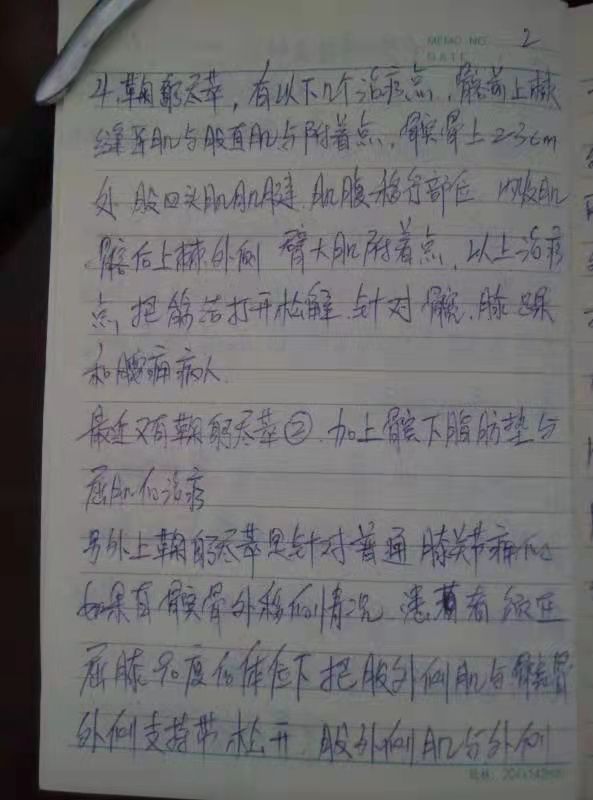 MEMO NO. 2
DATE
4.鞠躬尽萃，有以下几个治疗点，髂前上棘
缝匠肌与股直肌与附着点，髌骨上2-3cm
处 股四头肌肌腱 肌腹移行部位 内收肌
髂后上棘外侧 臂大肌附着点，以上治疗
点，把筋结打开松解.针对髋.膝.踝
和腰痛病人.
最近又有鞠躬尽萃②.加上髌下脂肪垫与
屈肌的治疗
另外上鞠躬尽萃是针对普通膝关节痛的
如果有髌骨外移的情况.患者 在
屈膝90度的体位下把股外侧肌与髌骨
外侧支持带松开.股外侧肌与外侧